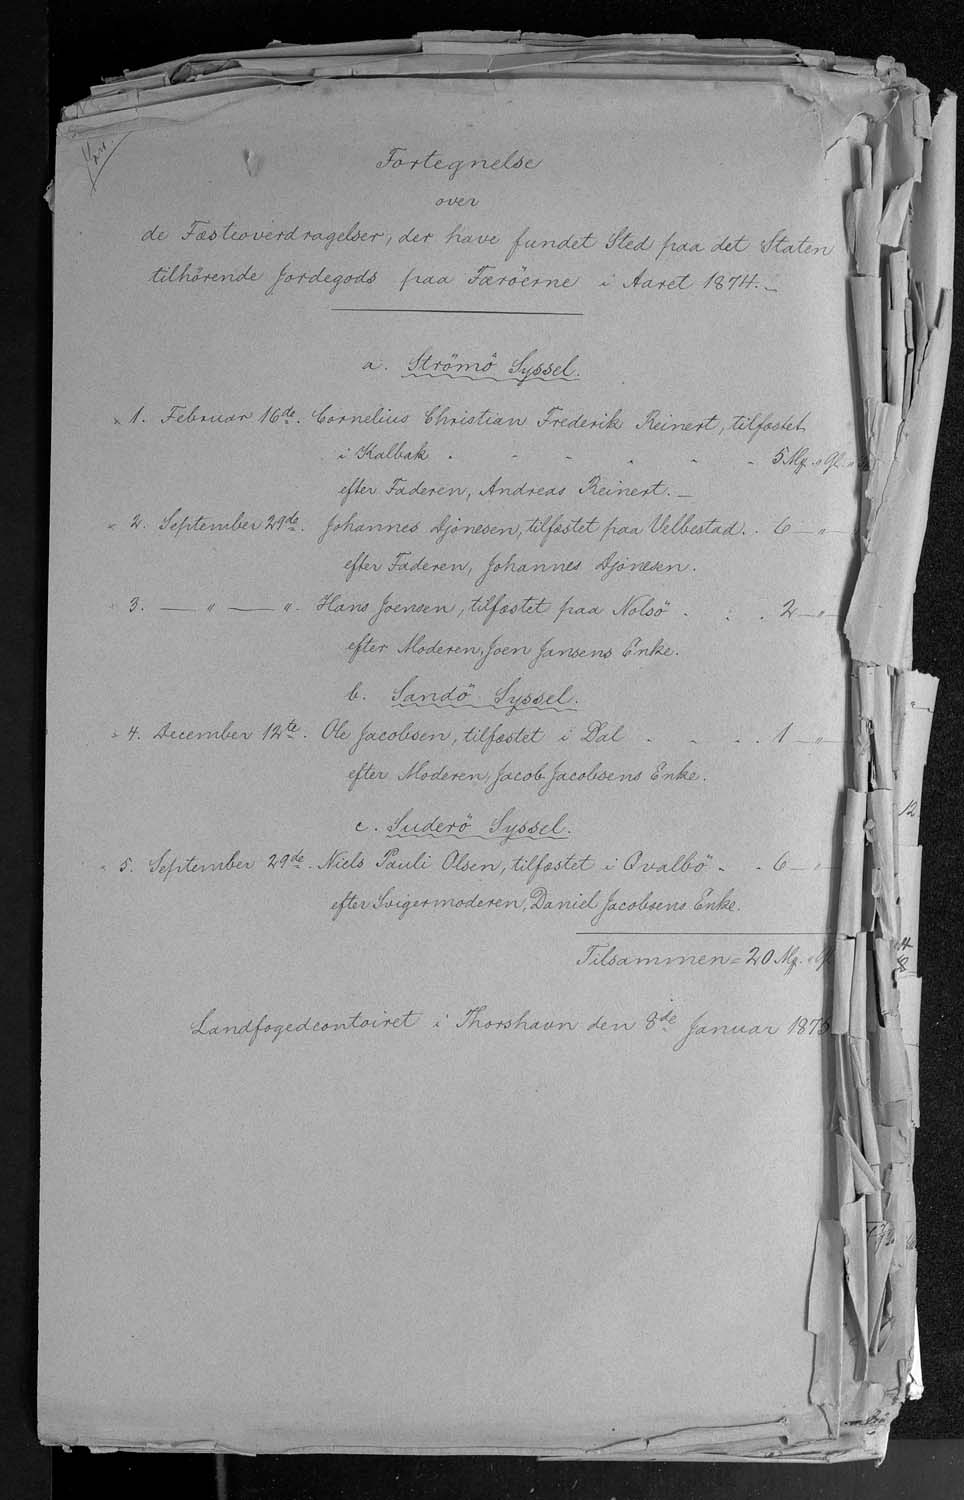 Fortegnelse
over
de Fæsteoverdragelser, der have fundet Sted paa det Staten
tilhörende Jordegods paa Færöerne i Aaret 1874.
a. Strömö Syssel.
1. Februar 16de. Cornelius Christian Frederik Reinert, tilfæstet
i Kalbak . - - . - - 5 Mk. " Gl. "
efter Faderen, Andreas Reinert.
2. September 29de. Johannes Djonesen, tilfæstet paa Velbestad. . 6 — " —
efter Faderen, Johannes Djonesen.
3. — " — " . Hans Joensen, tilfæstet paa Nolsö . . . 2 — " —
efter Moderen, Joen Jansens Enke.
b. Sandö Syssel.
4. December 12te. Ole Jacobsen, tilfæstet i Dal . . . . 1 — " —
efter Moderen, Jacob Jacobsens Enke.
c. Suderö Syssel.
5. September 29de. Niels Pauli Olsen, tilfæstet i Qvalbö . . 6 — " —
efter Svigermoderen, Daniel Jacobsens Enke.
Tilsammen = 20 Mk. " Gl.
Landfogedcontoiret i Thorshavn den 8de Januar 187
12
4
8